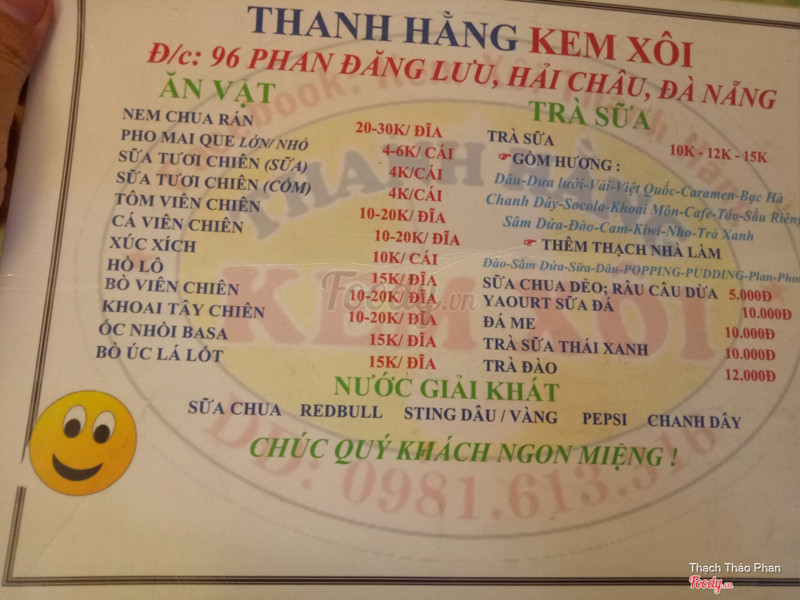 THANH HẰNG KEM XÔI
Đ/c: 96 PHAN ĐĂNG LƯU, HẢI CHÂU, ĐÀ NẴNG
ĂN VẶT
NEM CHUA RÁN 20-30K/ ĐĨA
PHO MAI QUE LỚN/NHỎ 4-6K/ CÁI
SỮA TƯƠI CHIÊN (SỮA) 4K/CÁI
SỮA TƯƠI CHIÊN (CỐM) 4K/CÁI
TÔM VIÊN CHIÊN 10-20K/ ĐĨA
CÁ VIÊN CHIÊN 10-20K/ ĐĨA
XÚC XÍCH 10K/ CÁI
HỒ LÔ 15K/ ĐĨA
BÒ VIÊN CHIÊN 10-20K/ ĐĨA
KHOAI TÂY CHIÊN 10-20K/ ĐĨA
ỐC NHỒI BASA 15K/ ĐĨA
BÒ ÚC LÁ LỐT 15K/ ĐĨA
TRÀ SỮA
TRÀ SỮA 10K - 12K - 15K
☞GỒM HƯƠNG :
Dâu-Dưa lưới-Vải-Việt Quốc-Caramen-Bạc Hà
Chanh Dây-Socola-Khoai Môn-Cafe-Táo-Sầu Riêng
Sâm Dứa-Đào-Cam-Kiwi-Nho-Trà Xanh
☞ THÊM THẠCH NHÀ LÀM
Đào-Sâm Dứa-Sữa-Dâu-POPPING-PUDDING-Plan-Pho
SỮA CHUA DẺO; RÂU CÂU DỪA 5.000Đ
YAOURT SỮA ĐÁ 10.000Đ
ĐÁ ME 10.000Đ
TRÀ SỮA THÁI XANH 10.000Đ
TRÀ ĐÀO 12.000Đ
NƯỚC GIẢI KHÁT
SỮA CHUA REDBULL STING DÂU / VÀNG PEPSI CHANH DÂY
CHÚC QUÝ KHÁCH NGON MIỆNG !
THANH HẰNG
KEM XÔI
DD: 0981.613.516
Foody.vn
Thạch Thảo Phan
Foody.vn